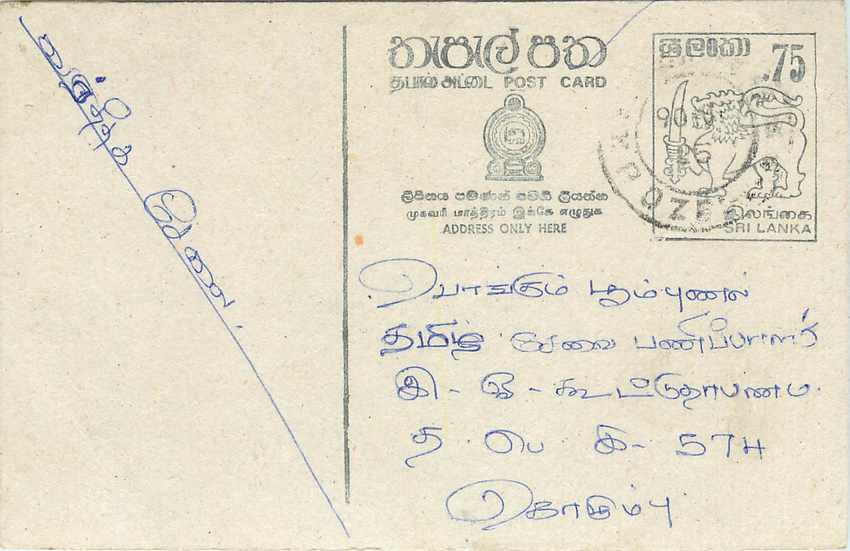 තැපැල් පත
தபால் அட்டை POST CARD
ලිපිනය පමණක් මෙහි ලියන්න
முகவரி மாத்திரம் இங்கே எழுதுக
ADDRESS ONLY HERE
ශ්‍රී ලංකා .75
இலங்கை
SRI LANKA
90
பொங்கும் பூம்புனல்
தமிழ் சேவை பணிப்பாளர்
இ - ஒ - கூட்டுதாபனம்
த பெ இ - 574
கொழும்பு